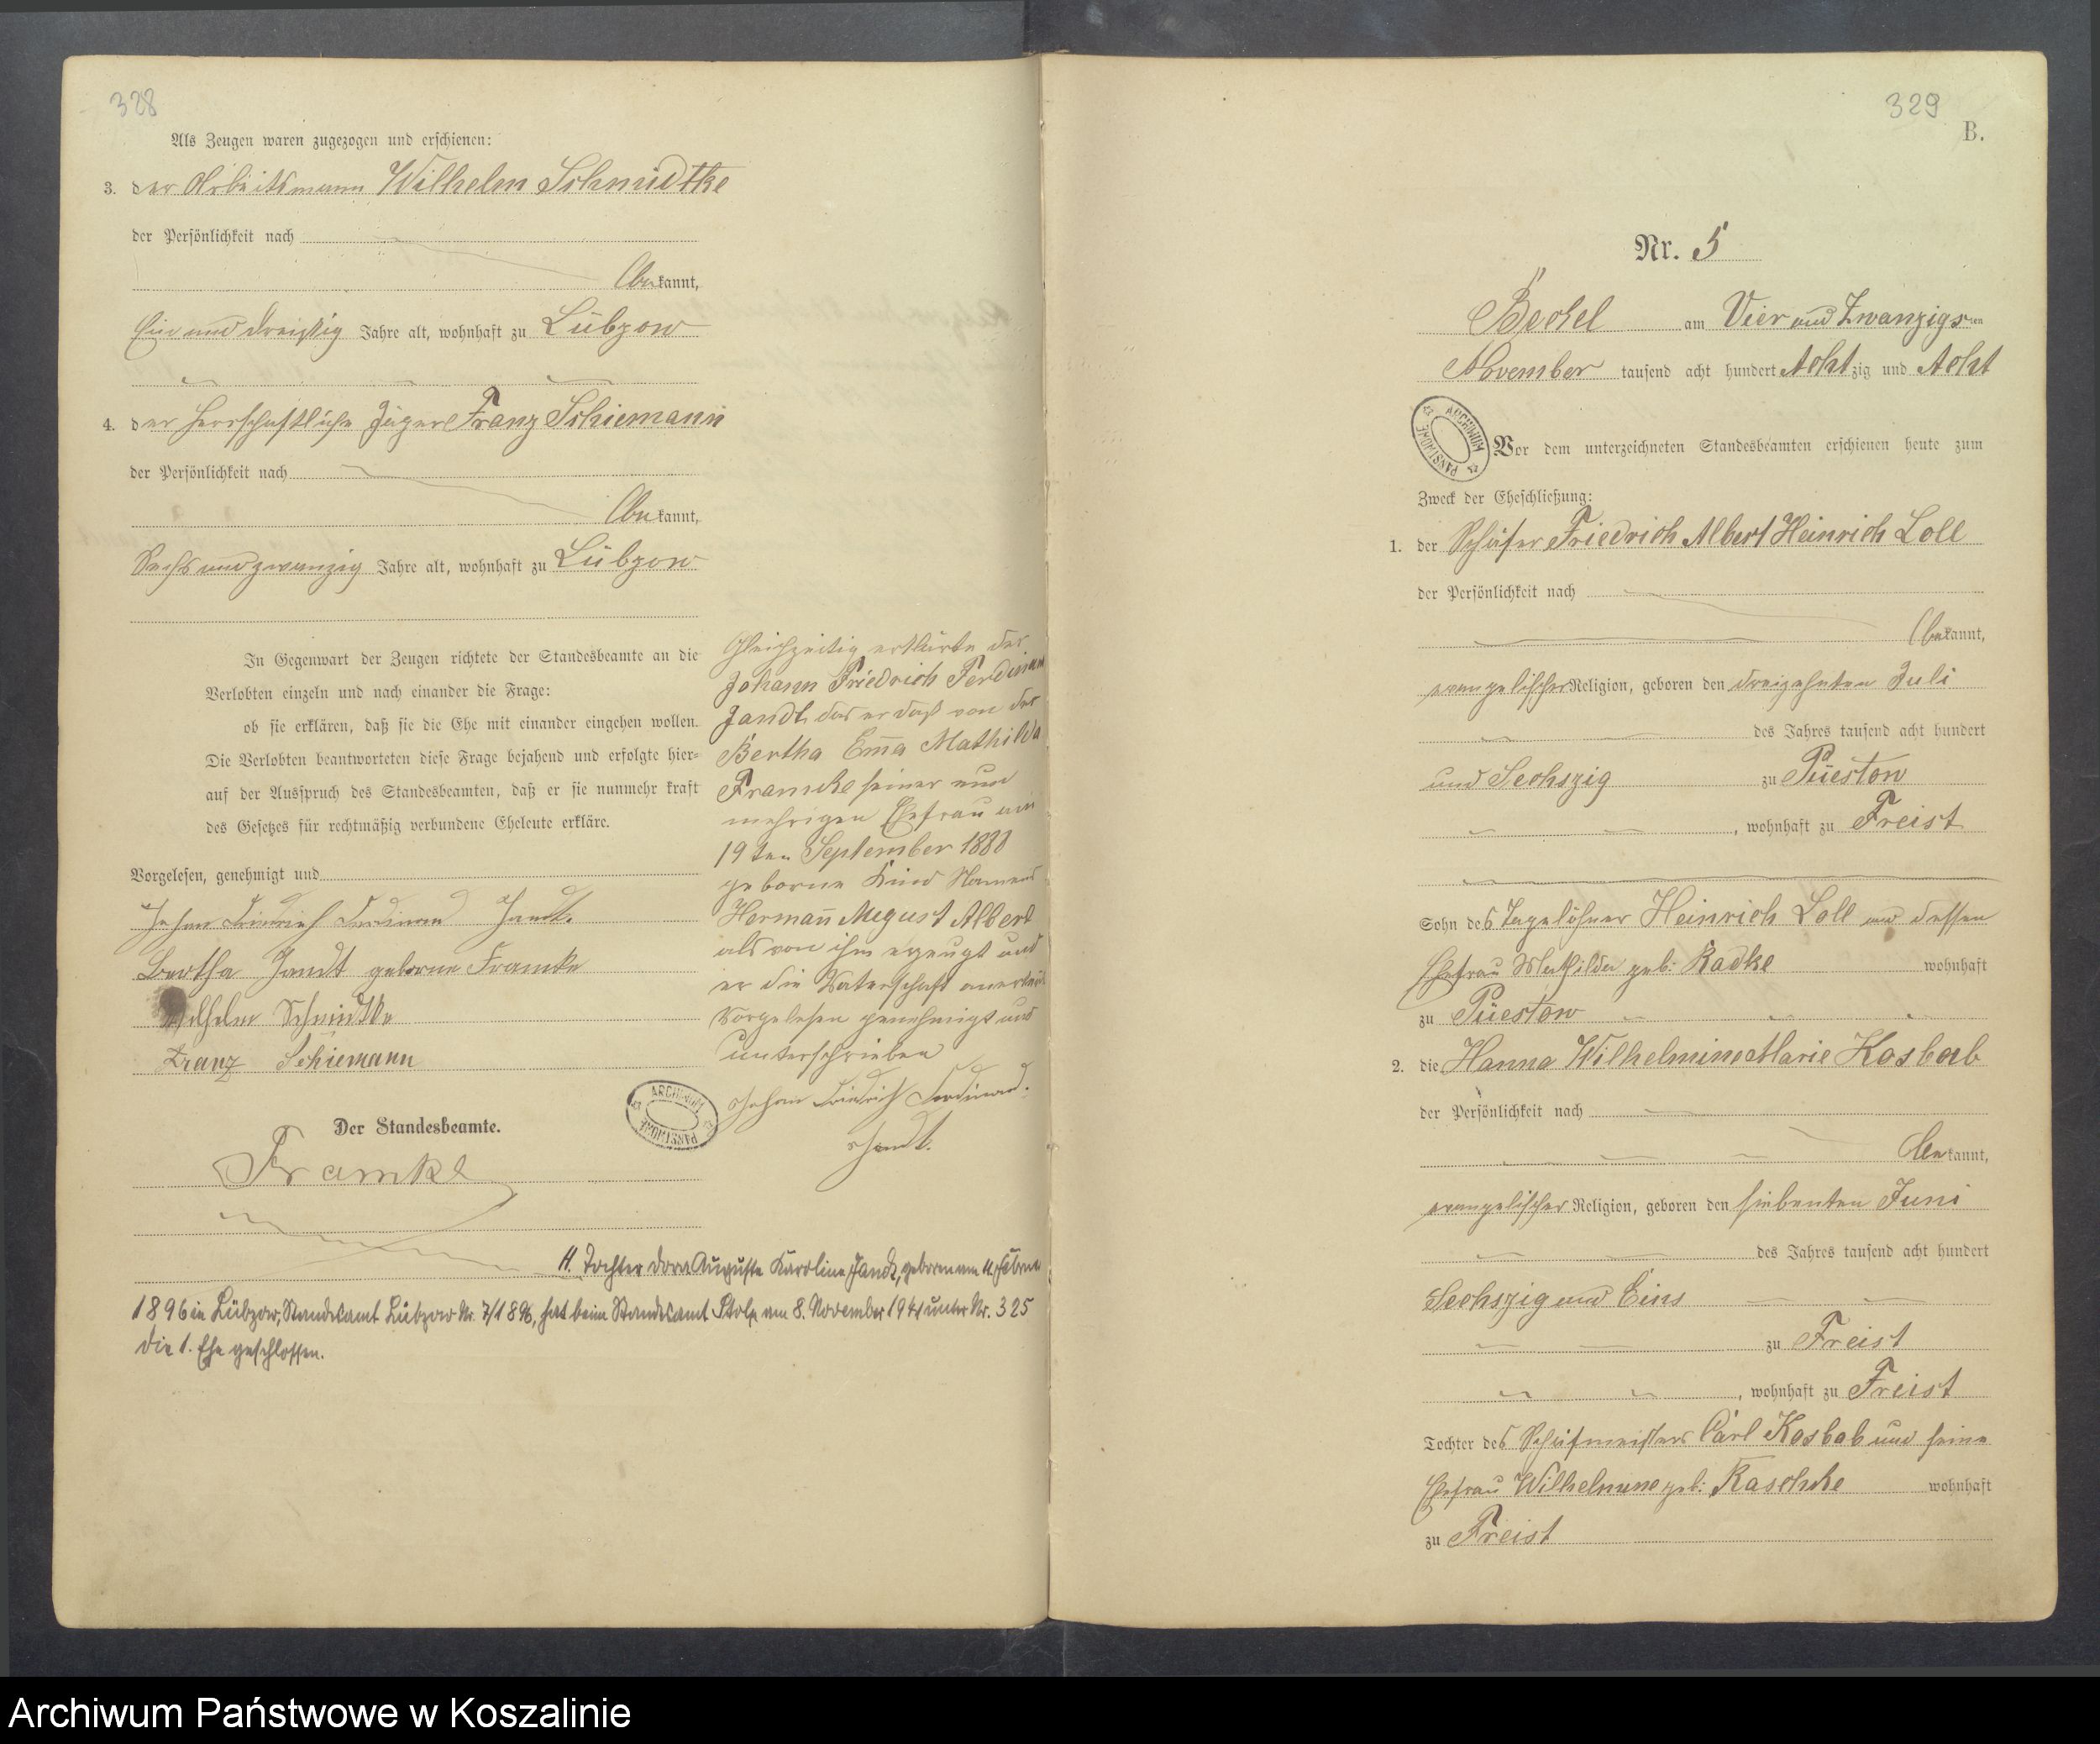 328
Als Zeugen waren zugezogen und erschienen:
3. der Arbeitsmann Wilhelm Schmidtke
der Persönlichkeit nach
bekannt,
Ein und dreißig Jahre alt, wohnhaft zu Lübzow
4. der herrschaftliche Jäger Franz Schiemann
der Persönlichkeit nach
bekannt,
Sechs und zwanzig Jahre alt, wohnhaft zu Lübzow
In Gegenwart der Zeugen richtete der Standesbeamte an die
Verlobten einzeln und nach einander die Frage:
ob sie erklären, daß sie die Ehe mit einander eingehen wollen.
Die Verlobten beantworteten diese Frage bejahend und erfolgte hier-
auf der Ausspruch des Standesbeamten, daß er sie nunmehr kraft
des Gesetzes für rechtmäßig verbundene Eheleute erkläre.
Vorgelesen, genehmigt und
Johan Friedrich Ferdinand Jandt.
Bertha Jandt geborne Framke
Wilhelm Schmidtke
Franz Schiemann
Der Standesbeamte.
Framke
Gleichzeitig erklärte der
Johann Friedrich Ferdinand
Jandt, das er daß von der
Bertha Em̅a Mathilda
Framcke seiner nun
mehrigen Ehefrau am
19ten September 1888
geborne Kind Namens
Herman̅ August Albert
als von ihm erzeugt und
er die Vaterschaft anerkent
Vorgelesen genehmigt und
unterschrieben
Johan Friedrich Ferdinand.
Jandt.
ARCHIWUM PAŃSTWOWE
H. Tochter Dora Auguste Karoline Jandt, geboren am 11. Februar
1896 in Lübzow, Standesamt Lübzow Nr. 7/1896, hat beim Standesamt Stolp am 8. November 1941 unter Nr. 325
die 1. Ehe geschlossen.
329
B.
Nr. 5
Beckel am Vier und Zwanzigsten
November tausend acht hundert Achtzig und Acht
ARCHIWUM PAŃSTWOWE
Vor dem unterzeichneten Standesbeamten erschienen heute zum
Zweck der Eheschließung:
1. der Schäfer Friedrich Albert Heinrich Loll
der Persönlichkeit nach
bekannt,
evangelischer Religion, geboren den dreizehnten Juli
des Jahres tausend acht hundert
und Sechszig zu Püestow
, wohnhaft zu Freist
Sohn des Tagelöhner Heinrich Loll und dessen
Ehefrau Mathilde geb: Radke wohnhaft
zu Püestow
2. die Hanna Wilhelmine Marie Kosbab
der Persönlichkeit nach
bekannt,
evangelischer Religion, geboren den siebenten Juni
des Jahres tausend acht hundert
Sechszig und Eins
zu Freist
, wohnhaft zu Freist
Tochter des Schäfmeisters Carl Kosbab und seine
Ehefrau Wilhelmine geb: Raschke wohnhaft
zu Freist
Archiwum Państwowe w Koszalinie